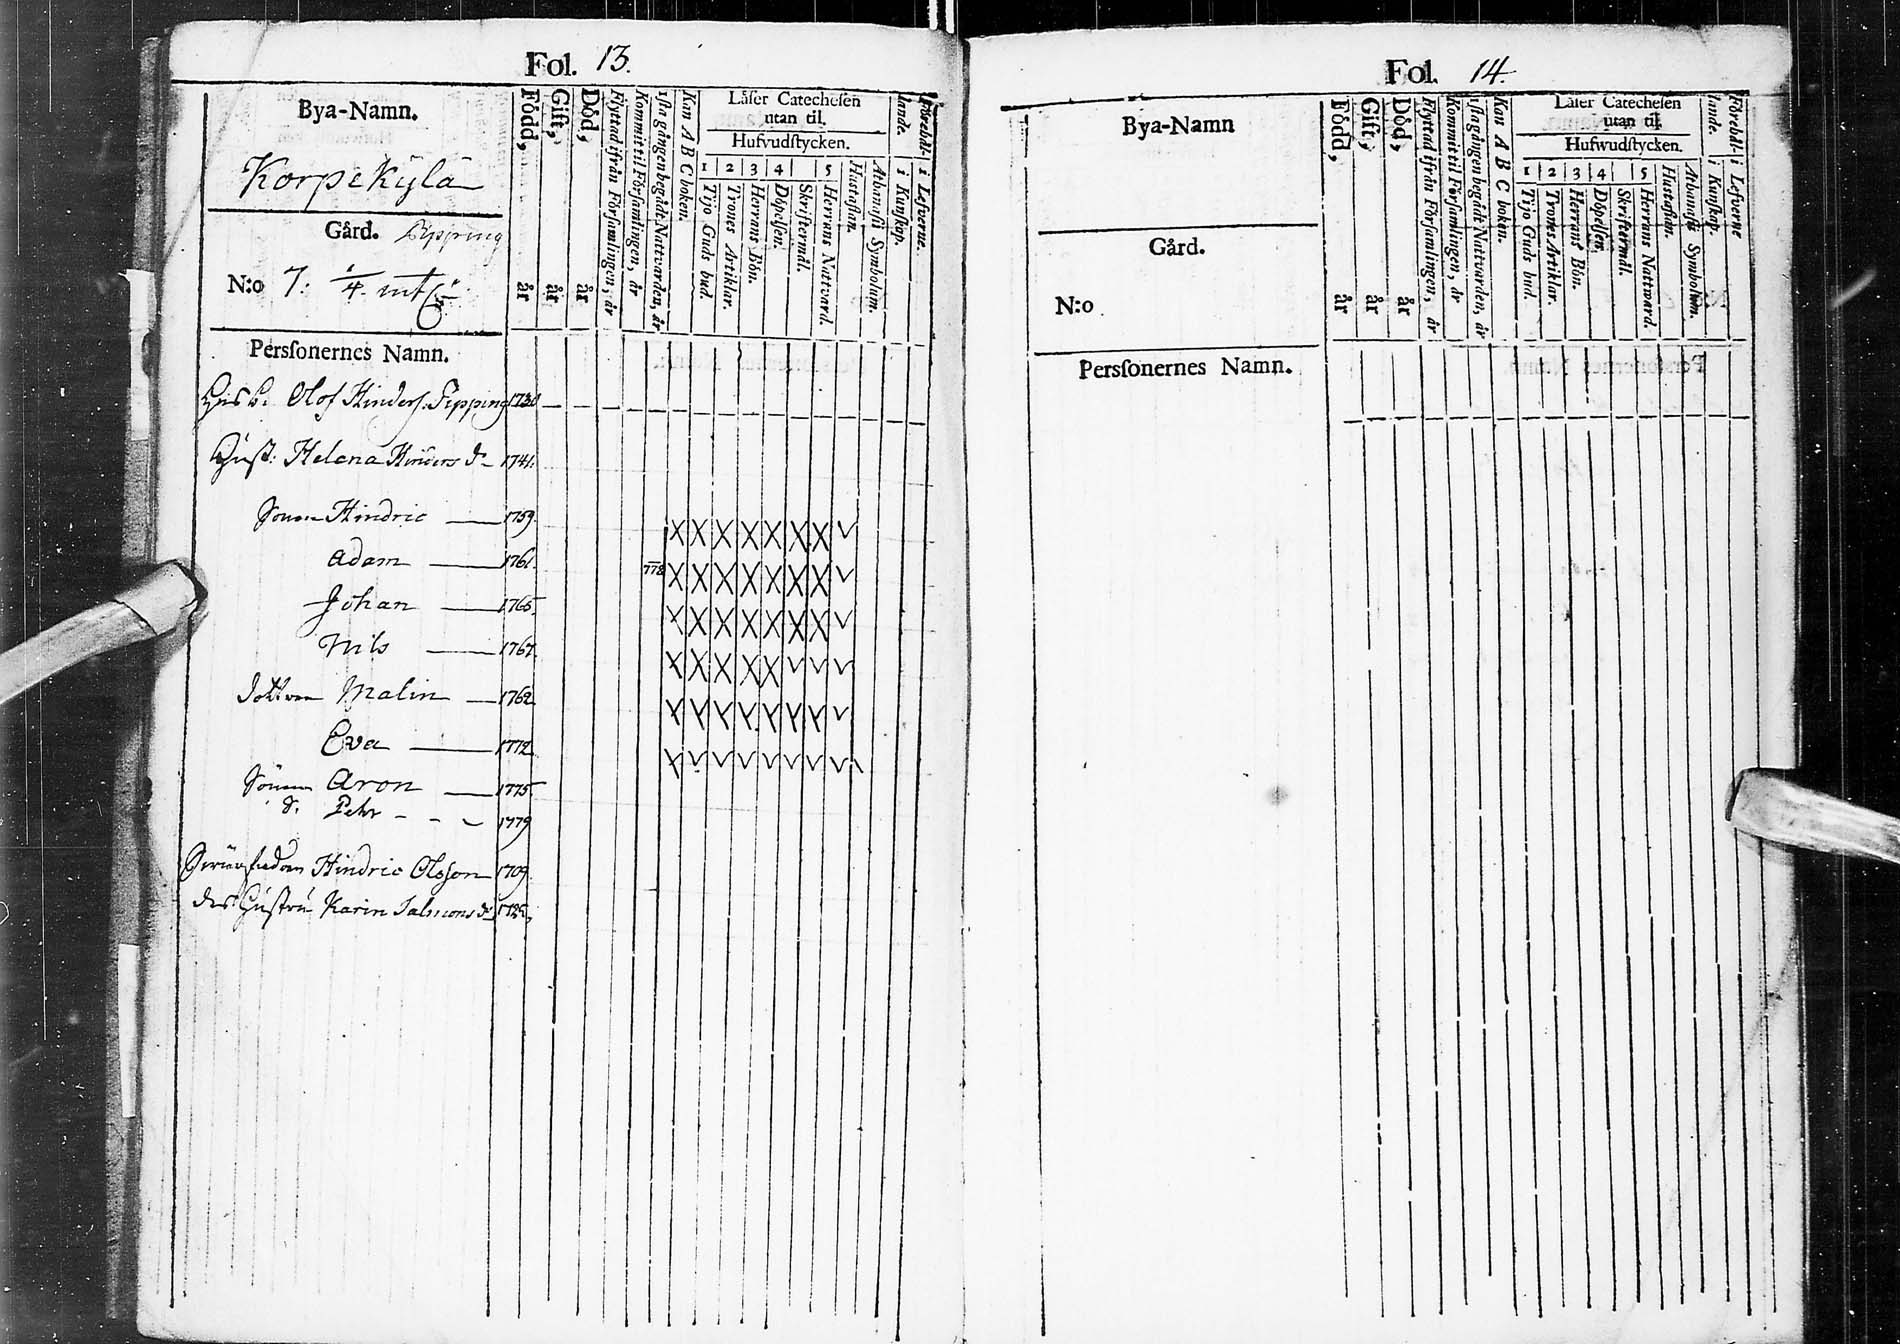 Fol. 13.
Bya-Namn.
Korpekylä
Gård. Pipping
N:o 7: 1/4. mtl
Persſonernes Namn.
Född, år
Gift, år
Död, år
Flyttad ifrån Förſamlingen, år
Kommit til Förſamlingen, år
1ſta gången begådt Nattvarden, år
Kan A B C boken.
Läſer Catecheſen
utan til.
Hufvudſtycken.
1 2 3 4 5
Tijo Guds bud.
Trones Artiklar.
Herrans Bön.
Döpelſen.
Skriftermål.
Herrans Nattvard.
Huſtaflan.
Athanaſii Symbolum.
Förebål-
lande.
i Kunſkap.
i Lefverne.
Olof Hinderſ: Pipping 1730
Huſt: Helena Hinders dr 1741.
Sonen Hindric 1759.
Adam 1761. 778
Johan 1765.
Nils 1767.
Dottren Malin 1762
Eva 1772
Sönen Aron 1775
S. Pehr 1779
Hindric Olsson 1709.
des Huſtru Karin Salmons dr
Fol. 14.
Bya-Namn
Gård.
N:o
Persſonernes Namn.
Född, år
Gift, år
Död, år
Flyttad ifrån Förſamlingen, år
Kommit til Förſamlingen, år
1ſta gången begådt Nattvarden, år
Kan A B C boken.
Läſer Catecheſen
utan til.
Hufwudſtycken.
1 2 3 4 5
Tijo Guds bud.
Trones Artiklar.
Herrans Bön.
Döpelſen.
Skriftermål.
Herrans Nattward.
Huſtaflan.
Athanaſii Symbolum.
Förebål-
lande.
i Kunſkap.
i Lefverne